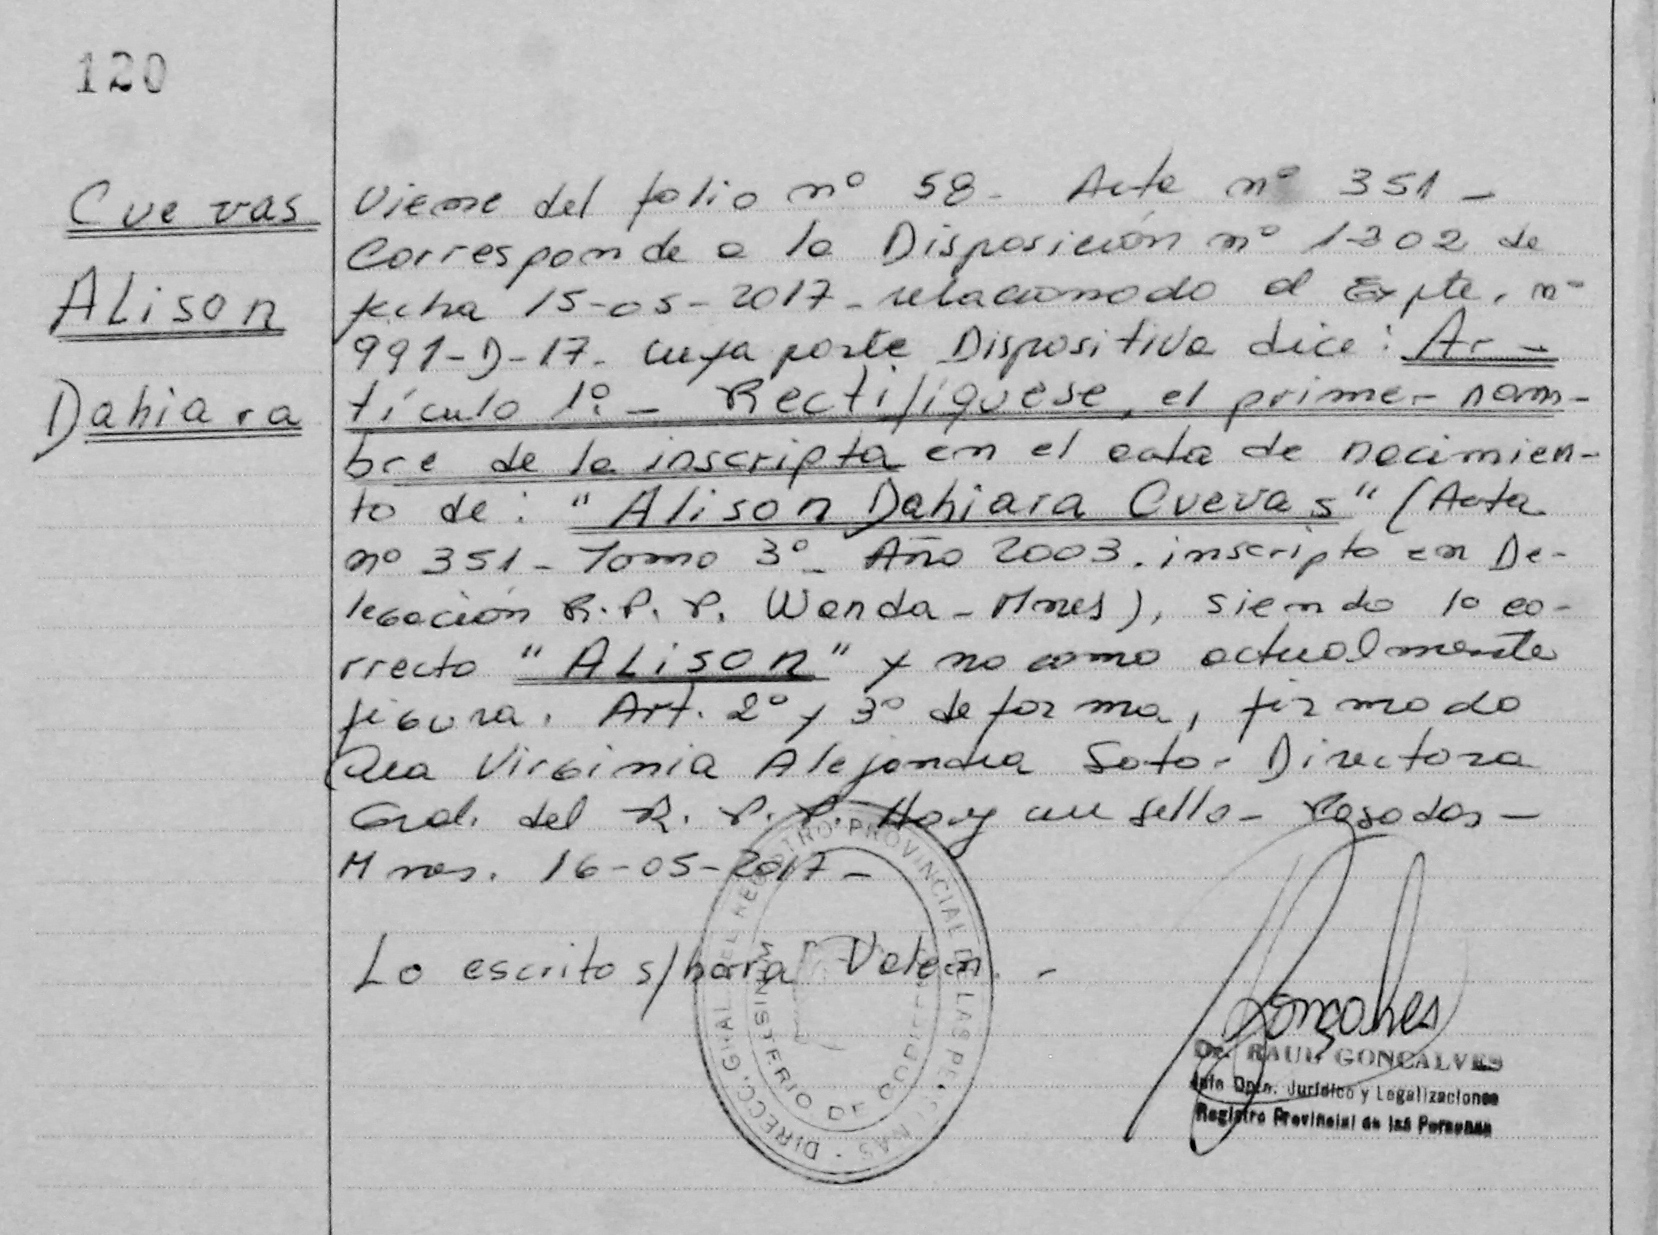 120
Cuevas
Alison
Dahiara
Viene del folio nº 58 - Acta nº 351 -
Corresponde a la Disposición nº 1302 de
fecha 15-05-2017 - relacionado al Expte. nº
991-D-17 - cuya parte Dispositiva dice: Ar-
tículo 1º. - Rectifíquese, el primer nom-
bre de la inscripta en el acta de nacimien-
to de: "Alison Dahiara Cuevas" (Acta
nº 351 - Tomo 3º - Año 2003. inscripto en De-
legación R.P.P. Wanda - Mnes), siendo lo co-
rrecto "ALison" y no como actualmente
figura. Art. 2º y 3º de forma, firmado
Virginia Alejandra Soto - Directora
Gral. del R. P. P. Hay un sello - Posadas -
Mnes. 16-05-2017 -
Lo escrito s/borra Valen. -
DIRECC. GRAL. DEL REGISTRO PROVINCIAL DE LAS PERSONAS -
MINISTERIO DE GOBIERNO
Gonçalves
Dr. RAUL GONCALVES
Jefe Dpto. Jurídico y Legalizaciones
Registro Provincial de las Personas